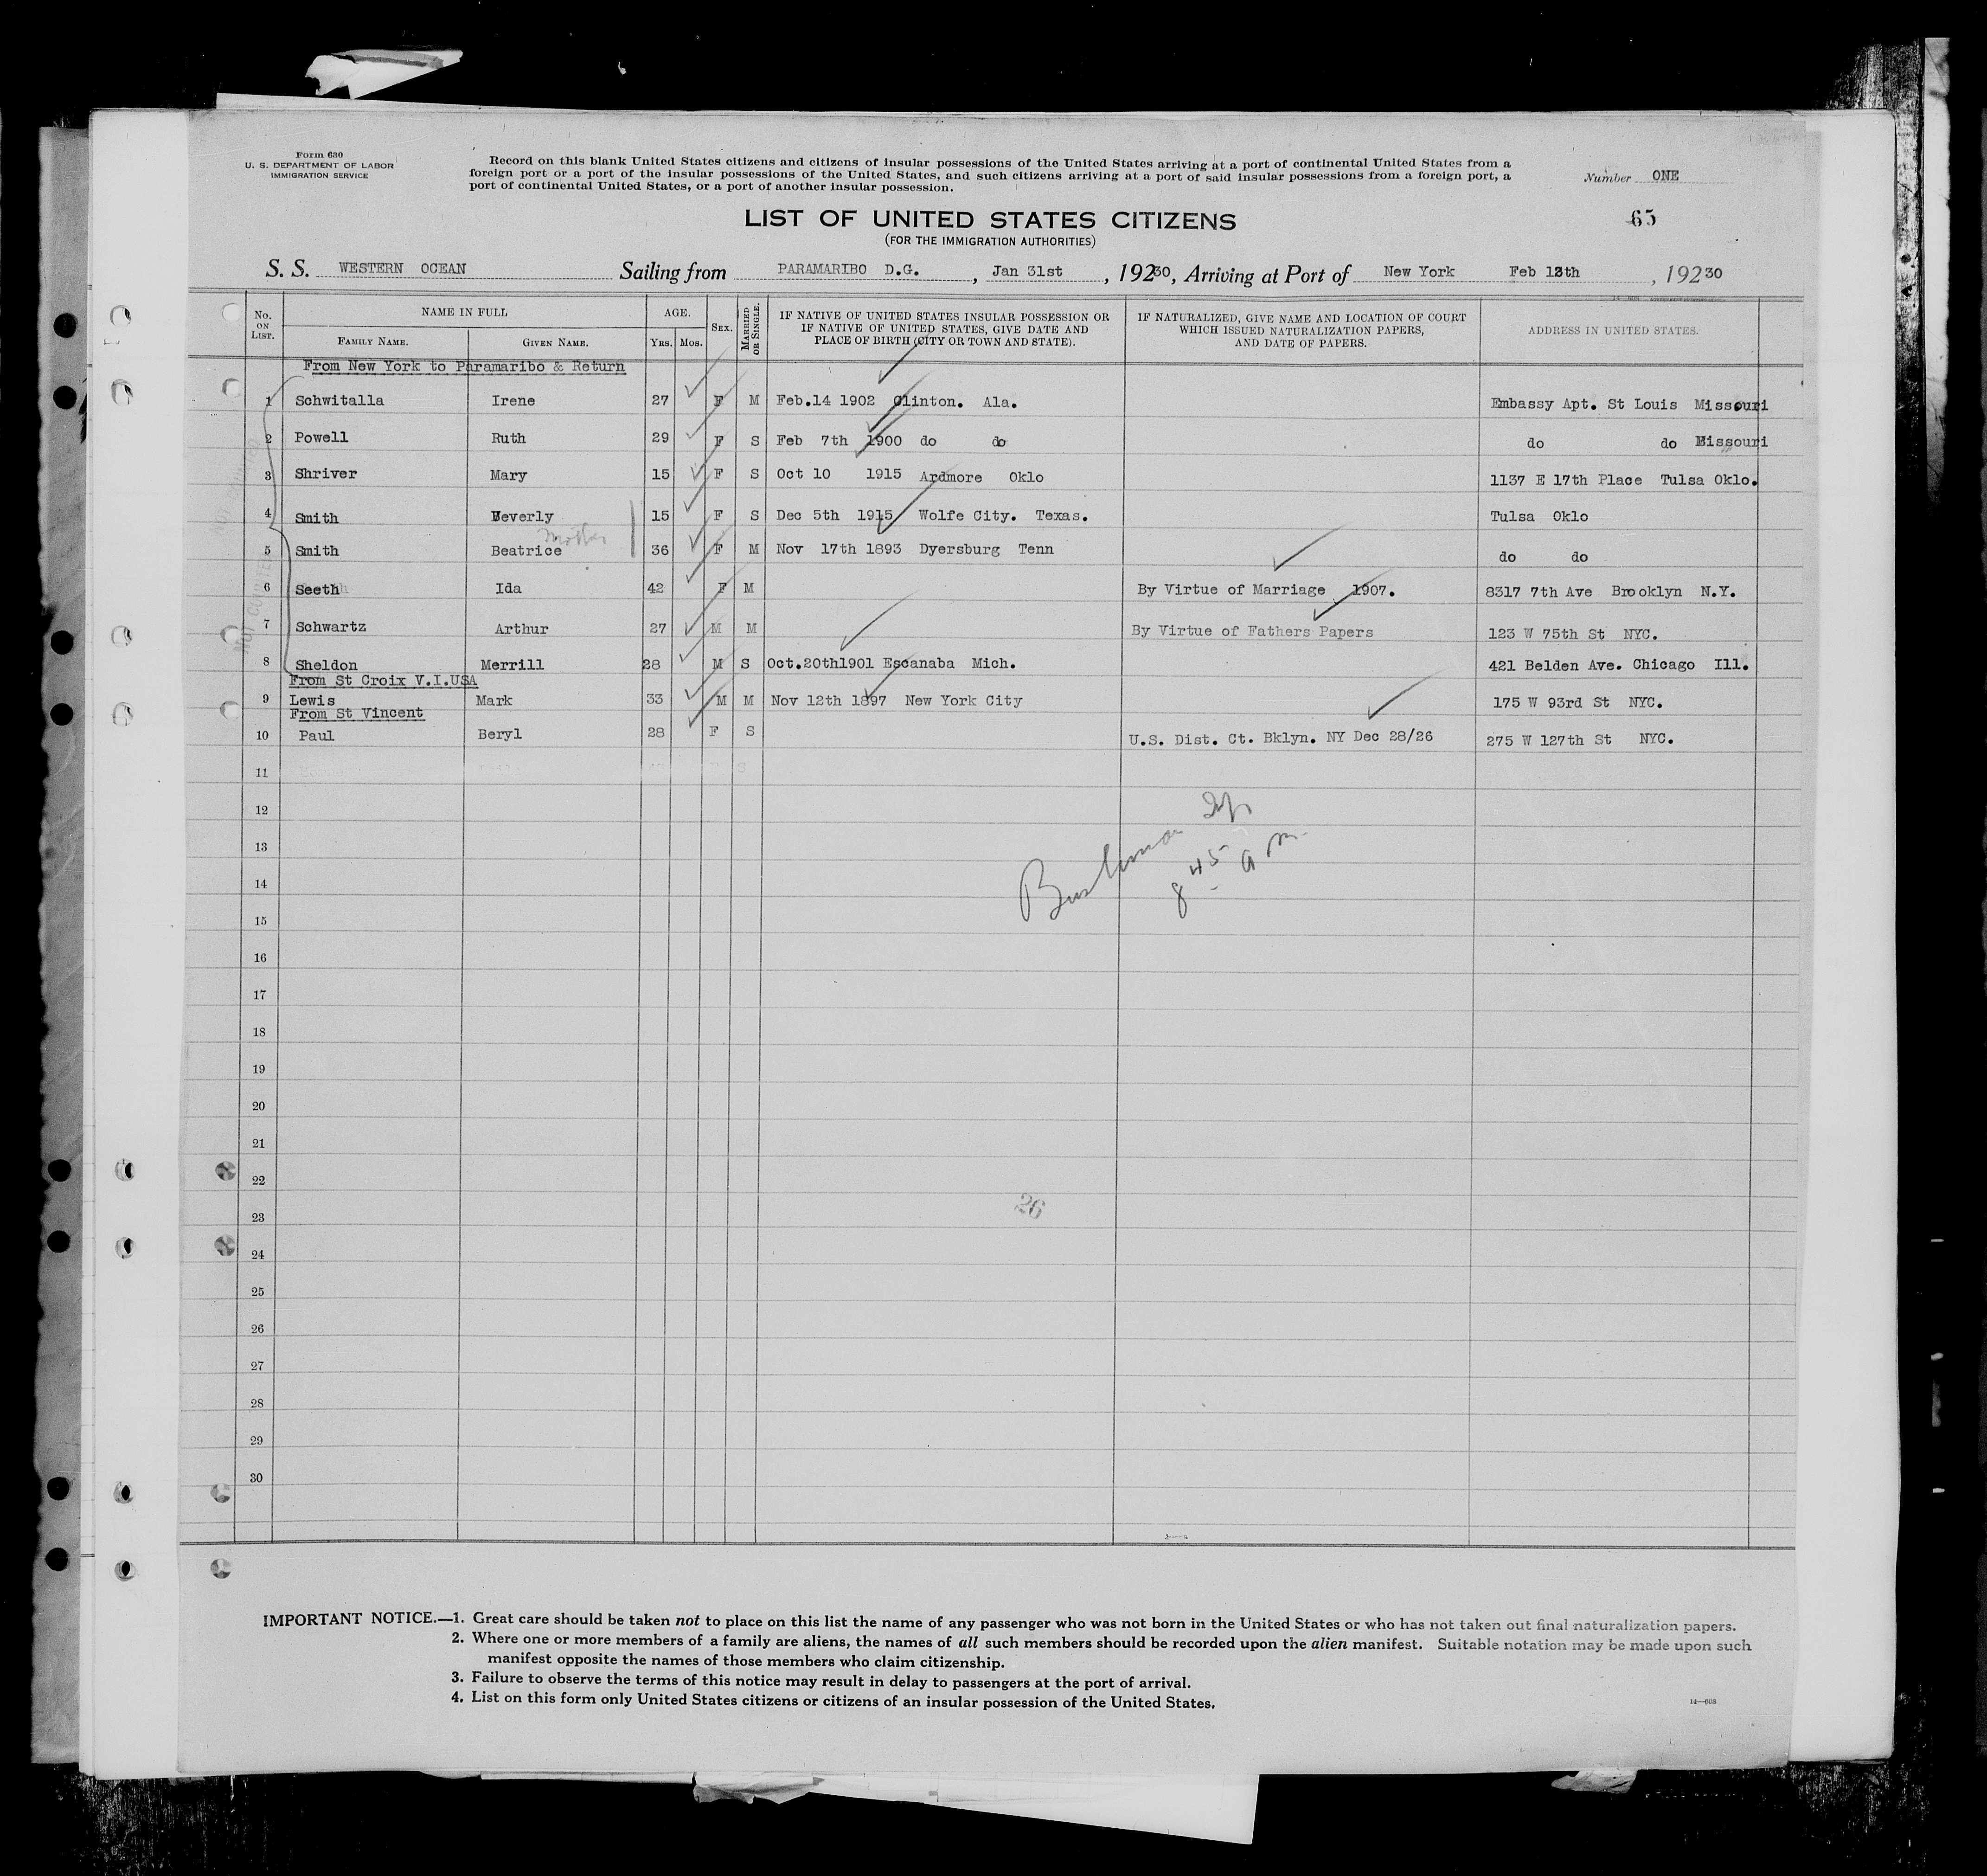 Form 630
U. S. DEPARTMENT OF LABOR
IMMIGRATION SERVICE
Record on this blank United States citizens and citizens of insular possessions of the United States arriving at a port of continental United States from a
foreign port or a port of the insular possessions of the United States, and such citizens arriving at a port of said insular possessions from a foreign port, a
port of continental United States, or a port of another insular possession.
Number ONE
65
LIST OF UNITED STATES CITIZENS
(FOR THE IMMIGRATION AUTHORITIES)
S. S. WESTERN OCEAN Sailing from PARAMARIBO D.G. , Jan 31st , 19230, Arriving at Port of New York Feb 13th , 19230
No. ON LIST. NAME IN FULL AGE. SEX. MARRIED OR SINGLE. IF NATIVE OF UNITED STATES INSULAR POSSESSION OR IF NATIVE OF UNITED STATES, GIVE DATE AND PLACE OF BIRTH (CITY OR TOWN AND STATE). IF NATURALIZED, GIVE NAME AND LOCATION OF COURT WHICH ISSUED NATURALIZATION PAPERS, AND DATE OF PAPERS. ADDRESS IN UNITED STATES.
FAMILY NAME. GIVEN NAME. YRS. MOS.
From New York to Paramaribo & Return
1 Schwitalla Irene 27 F M Feb.14 1902 Clinton. Ala. Embassy Apt. St Louis Missouri
2 Powell Ruth 29 F S Feb 7th 1900 do do do do Missouri
3 Shriver Mary 15 F S Oct 10 1915 Ardmore Oklo 1137 E 17th Place Tulsa Oklo.
4 Smith Beverly 15 F S Dec 5th 1915 Wolfe City. Texas. Tulsa Oklo
mother
5 Smith Beatrice 36 F M Nov 17th 1893 Dyersburg Tenn do do
6 Seeth Ida 42 F M By Virtue of Marriage 1907. 8317 7th Ave Brooklyn N.Y.
7 Schwartz Arthur 27 M M By Virtue of Fathers Papers 123 W 75th St NYC.
8 Sheldon Merrill 28 M S Oct.20th1901 Escanaba Mich. 421 Belden Ave. Chicago Ill.
From St Croix V.I.USA
9 Lewis Mark 33 M M Nov 12th 1897 New York City 175 W 93rd St NYC.
From St Vincent
10 Paul Beryl 28 F S U.S. Dist. Ct. Bklyn. NY Dec 28/26 275 W 127th St NYC.
11
12
13
8 45 a m
14
15
16
17
18
19
20
21
22
26
23
24
25
26
27
28
29
30
IMPORTANT NOTICE.—1. Great care should be taken not to place on this list the name of any passenger who was not born in the United States or who has not taken out final naturalization papers.
2. Where one or more members of a family are aliens, the names of all such members should be recorded upon the alien manifest. Suitable notation may be made upon such
manifest opposite the names of those members who claim citizenship.
3. Failure to observe the terms of this notice may result in delay to passengers at the port of arrival.
4. List on this form only United States citizens or citizens of an insular possession of the United States.
14—608